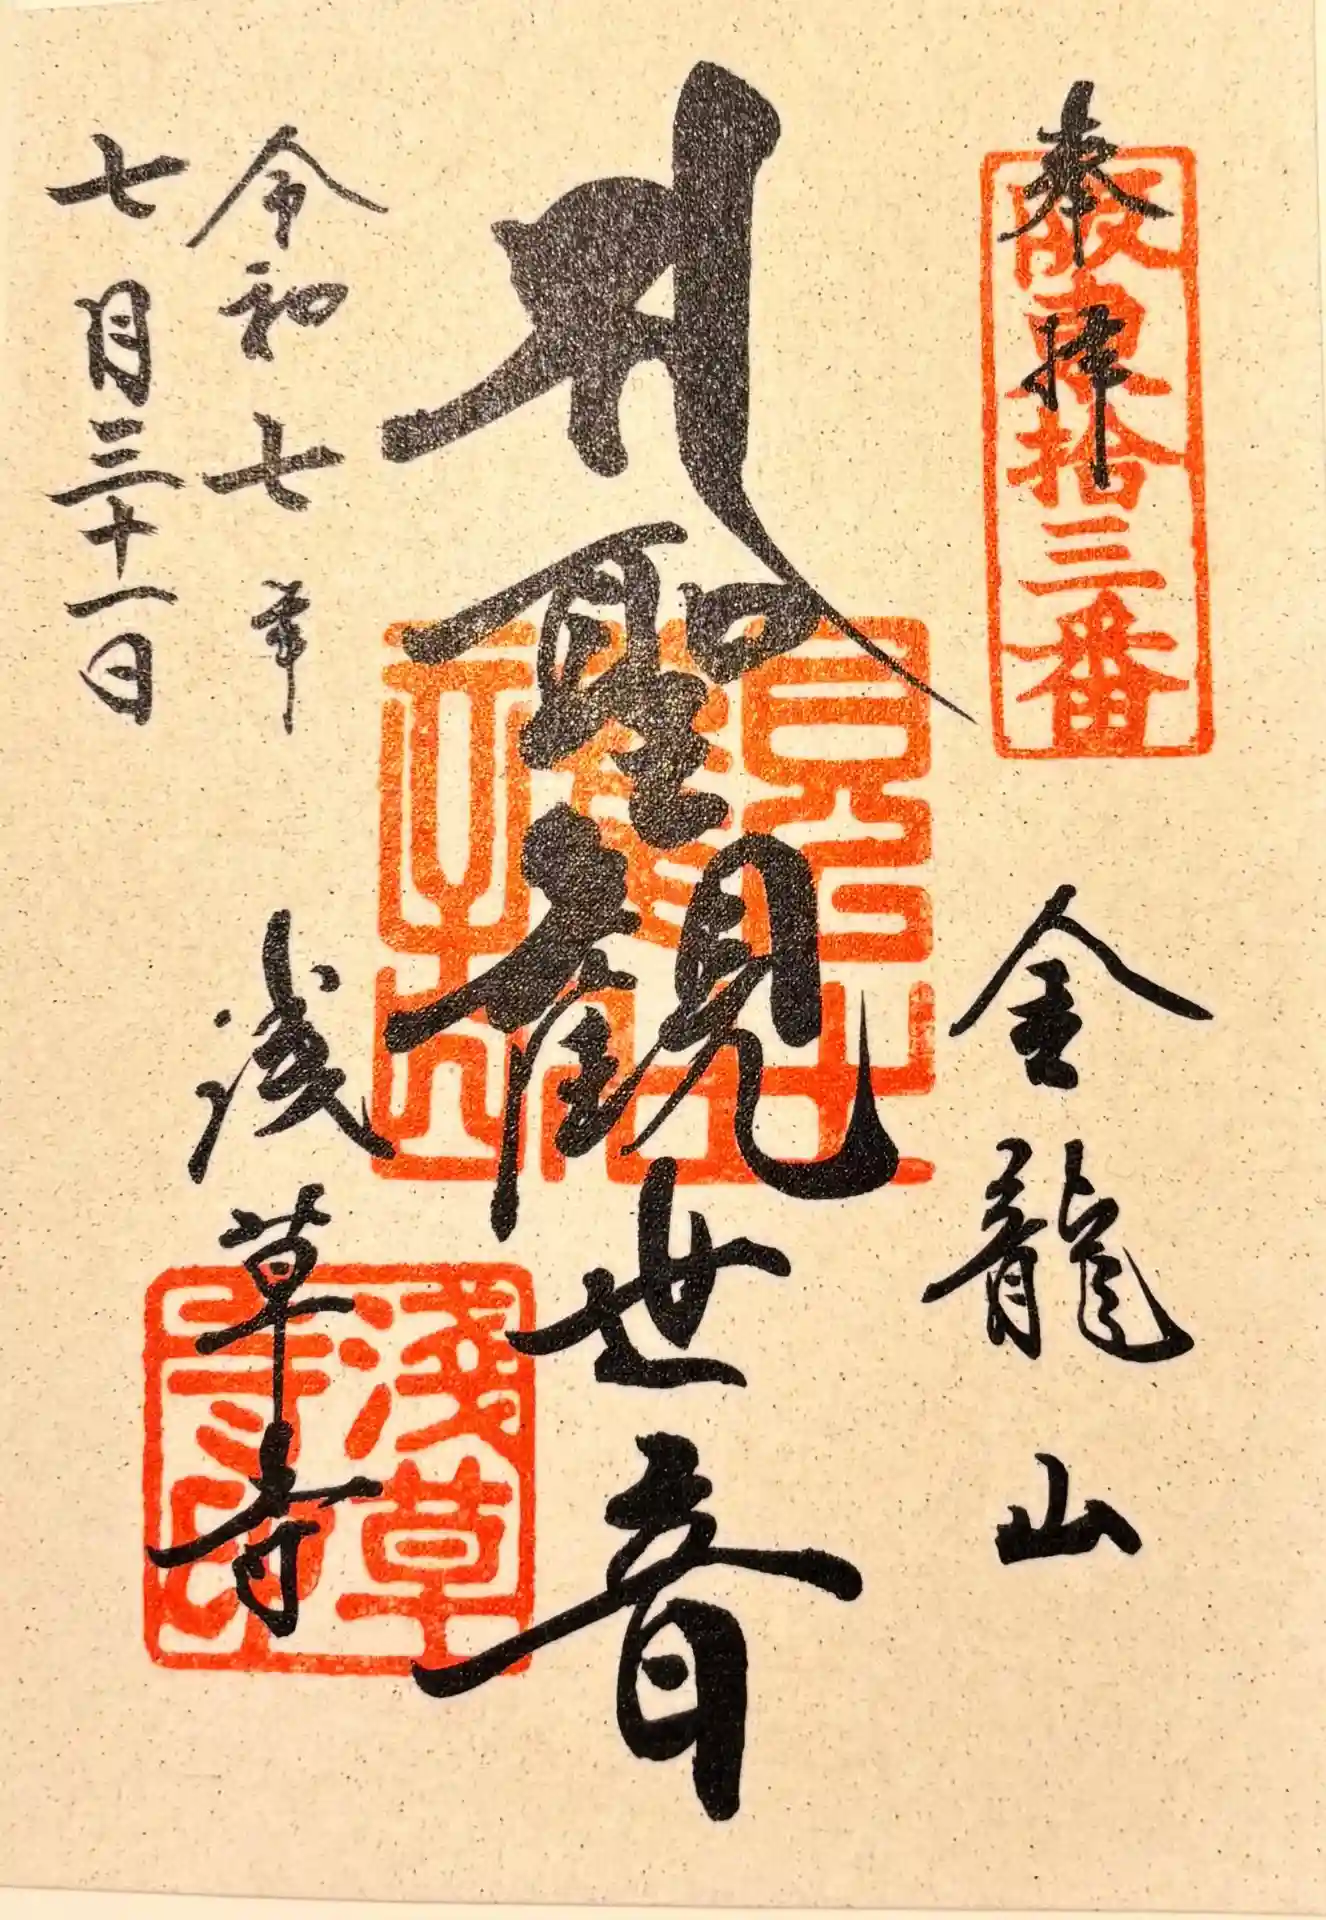 奉拝
阪東拾三番
金龍山
聖観世音
浅草寺
淺草寺印
令和七年
七月三十一日